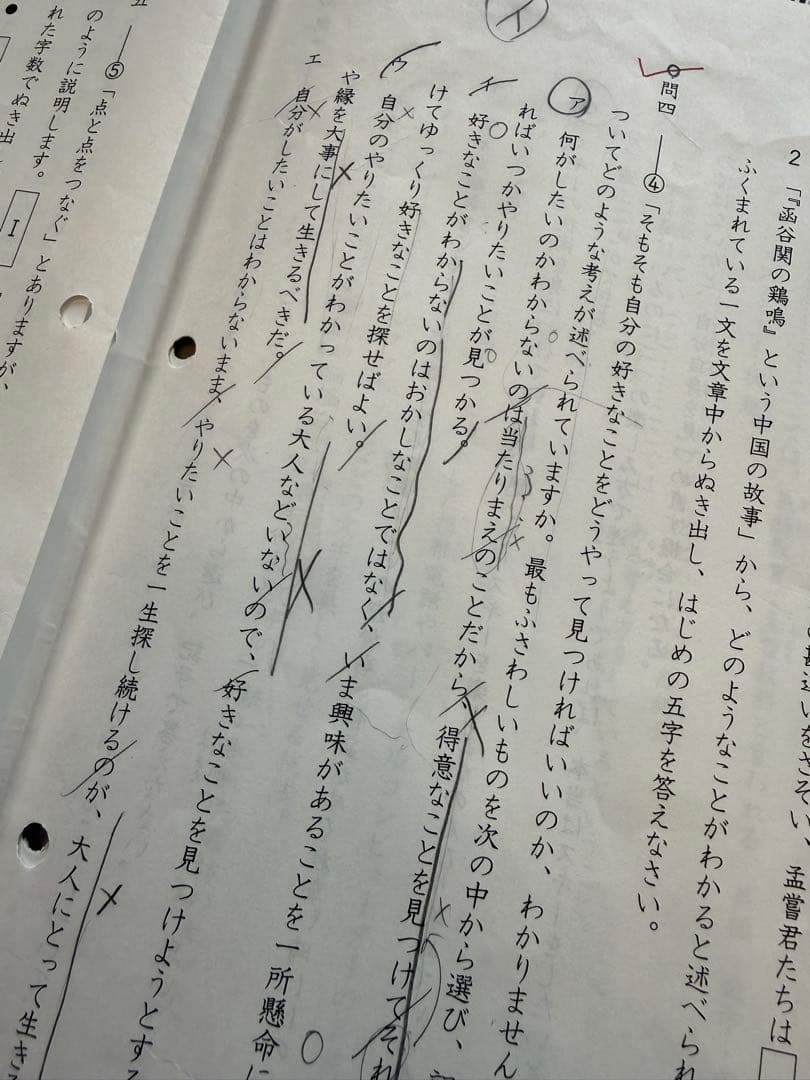 違いをさそい、孟嘗君たちは
2 「『函谷関の鶏鳴』という中国の故事」から、どのようなことがわかると述べられ
ふくまれている一文を文章中からぬき出し、はじめの五字を答えなさい。
問四 ④「そもそも自分の好きなことをどうやって見つければいいのか、わかりません
ついてどのような考えが述べられていますか。最もふさわしいものを次の中から選び、
イ
ア 何がしたいのかわからないのは当たりまえのことだから、得意なことを見つけてそれ
ればいつかやりたいことが見つかる。
イ 好きなことがわからないのはおかしなことではなく、いま興味があることを一所懸命に
けてゆっくり好きなことを探せばよい。
ウ 自分のやりたいことがわかっている大人などいないので、好きなことを見つけようとする
や縁を大事にして生きるべきだ。
エ 自分がしたいことはわからないまま、やりたいことを一生探し続けるのが、大人にとって生き
五 ⑤「点と点をつなぐ」とありますが、
のように説明します。
れた字数でぬき出
I